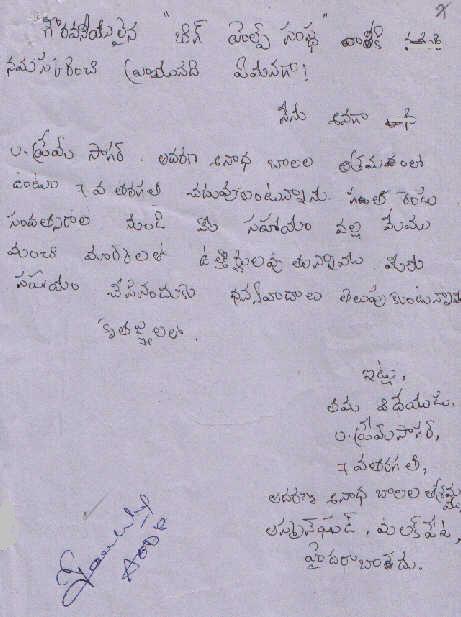 గౌరవనీయులైన "బిగ్ హెల్ప్ సంస్థ" వారికి
నమస్కరించి వ్రాయునది ఏమనగా!
నేను అనగా
ఎ.ప్రేమ్ సాగర్. ఆదరణ అనాధ బాలల ఆశ్రమంలో
ఉంటూ 7వ తరగతి చదువుకుంటున్నాను. గత రెండు
సంవత్సరాల నుండి మీ సహాయం వల్ల మేము
మంచి మార్కులతో ఉత్తీర్ణులవుతున్నాము. మీరు
సహాయం చేసినందుకు ధన్యవాదాలు తెలుపుకుంటున్నాను
కృతజ్ఞతలతో.
ఇట్లు,
తమ విదేయుడు.
ఎ.ప్రేమ్ సాగర్,
7వతరగతి,
ఆదరణ అనాధ బాలల ఆశ్రమము
అస్మన్‌ఘడ్, మలక్ పేట,
హైదరాబాదు.